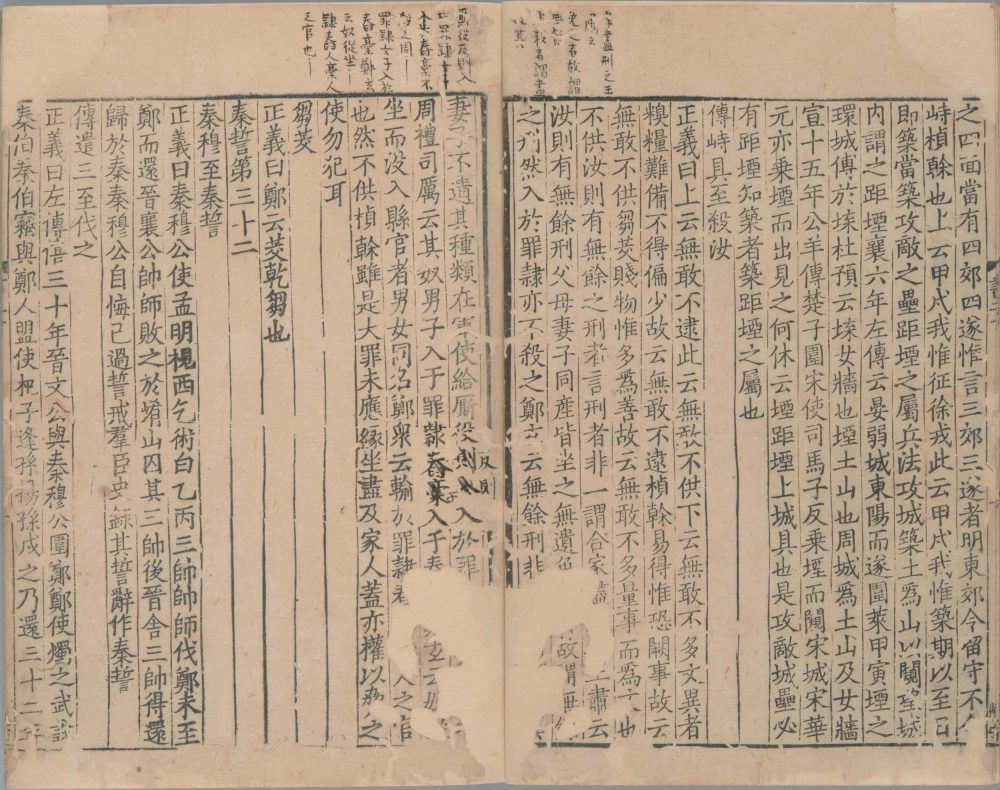 之四面當有四郊四遂惟言三郊三遂者明東郊令留守不
峙楨榦也上云甲戌我惟征徐戎此云甲戌我惟築期以至日
即築當築攻敵之壘距堙之屬兵法攻城築土爲山以闚望城
内謂之距堙襄六年左傳云晏弱城東陽而遂圍萊甲寅堙之
環城傅於堞杜預云堞女牆也堙土山也周城爲土山及女牆
宣十五年公羊傳楚子圍宋使司馬子反乗堙而闚宋城宋華
元亦乗堙而出見之何休云堙距堙上城具也是攻敵城壘必
有距堙知築者築距堙之屬也
傳峙具至殺汝
正義曰上云無敢不逮此云無敢不供下云無敢不多文異者
糗糧難備不得偏少故云無敢不逮楨榦易得惟恐闕事故云
無敢不供芻茭賤物惟多爲善故云無敢不多量事而爲文也
不供汝則有無餘之刑者言刑者非一謂合家盡 王肅云
汝則有無餘刑父母妻子同産皆坐之無遺免 故謂無餘
之刑然入於罪隷亦不殺之鄭玄云無餘刑非
妻子不遺其種類在軍使給厮役則入於罪
周禮司厲云其奴男子入于罪隷 入于舂
坐而没入縣官者男女同名鄭衆云輸於罪隷 人之官
也然不供楨榦雖是大罪未應縁坐盡及家人蓋亦權以脅之
使勿犯耳
芻茭
正義曰鄭云茭乾芻也
秦誓第三十二
秦穆至秦誓
正義曰秦穆公使孟明視西乞術白乙丙三帥帥師伐鄭未至
鄭而還晉襄公帥師敗之於崤山囚其三帥後晉舍三帥得還
歸於秦秦穆公自悔己過誓戒羣臣史録其誓辭作秦誓
傳遣三至伐之
正義曰左傳僖三十年晉文公與秦穆公圍鄭鄭使燭之武説
秦伯秦伯竊與鄭人盟使杞子逢孫揚孫戍之乃還三十二年